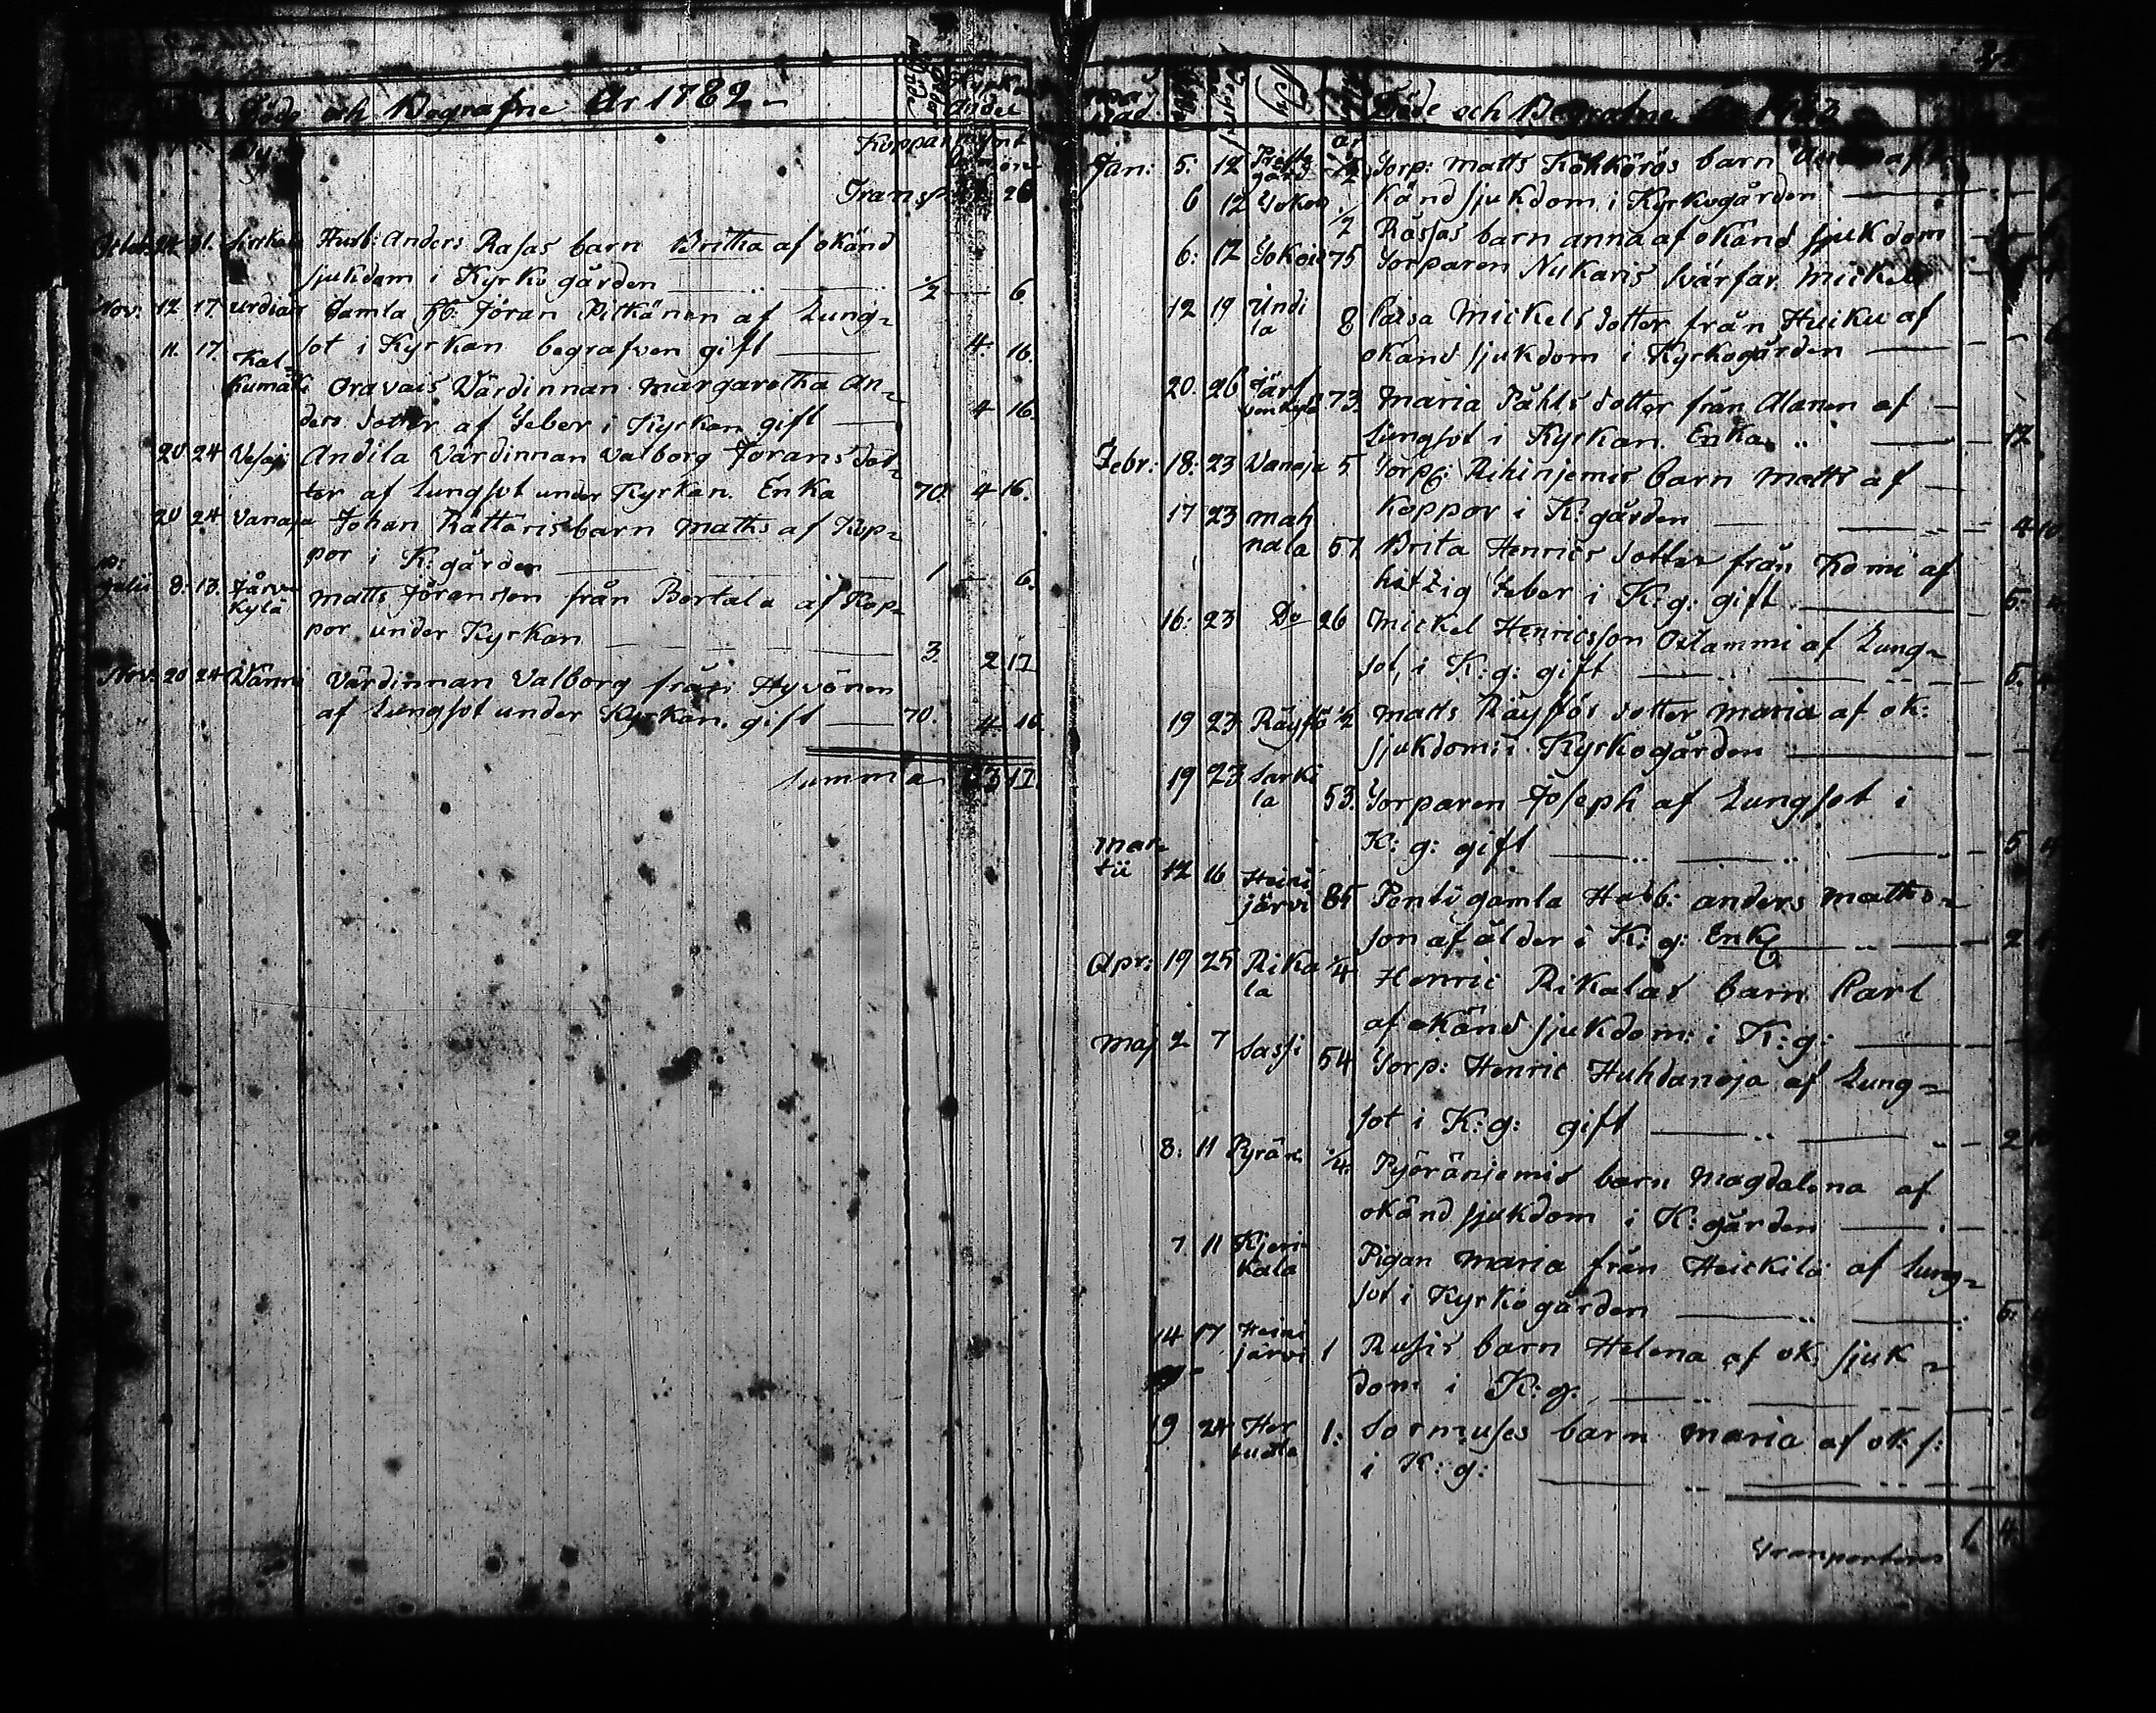 Döde och Begrafne År 1782
By
Koppar mynt
Transp 26
Octob 24 31. Husb: Anders Rasas barn Britha af okänd
sjukdom i Kyrkogården ½ 6
Nov: 12 17 Gamla Jöran Pitkänen af Lung=
sot i Kyrkan begrafven gift 4. 16.
11. 17. Kal
kumäki Oravais Wärdinnan Margaretha An=
ders dotter af Feber i Kyrkan gift 4 16.
20 24 Vesaj Andila Värdinnan Valborg Jörans dot=
ter af Lungsot under Kyrkan. Enka 70. 4 16.
20 24 Vanaja Johan Rättäris barn Matts af Kop=
por i K: gården 1 6.
8. 13. Järven
kylä Matts Jöransson från Bertala af Kop=
por under Kyrkan 3. 2 17
Nov. 20 24 Värdinnan Valborg från Hyvönen
af Lungsot under Kyrkan. gift 70. 4 16.
Summa
Döde och Begrafne
Jan: 5. 12 Torp: Matts Kökkörös barn
känd sjukdom i Kyrkogården
6 12 ½ Rässas barn anna af okänd sjukdom
6. 12 75 Torparen Nukaris Svärfar Mickel
12 19 Undi
la 8 Caisa Mickels dotter från Huiku af
okänd sjukdom i Kyrkogården
20. 26 Järf
venkylä 73. Maria Påhls dotter från Alanen af
Lungsot i Kyrkan. Enka 12
Febr: 18: 23 Vanaja 5 Torp: Rihinjemis barn Matts af
Koppor i K: gården 4 10.
17 23 Mah
nala 57 Brita Henrics dotter från Komi af
hitzig Feber i K: g: gift 5.
16: 23 Do 26 Mickel Henricsson Oxlammi af Lung=
sot, i K: g: gift 5.
19 23 Räyskö ½ Matts Räyskös dotter Maria af ok:
sjukdom: i Kyrkogården
19 23 Sarki
la 53. Torparen Joseph af Lungsot i
K: g: gift 5
Mar=
tii 12 16 Heini
järvi 85 Penti gamla Husb: anders Matts=
son af ålder i K: g: Enkl 2
Apr: 19 25 Rika
la ¼ Henric Rikalas barn Carl
af okänd sjukdom: i K: g:
Maj 2 7 Sassi 54 Torp: Henric Huhdanoja af Lung=
sot i K: g: gift 2
8: 11 Pyrän ¼ Pyöräniemis barn Magdalena af
okänd sjukdom i K: gården
7 11 Kjeri
kala Pigan Maria från Heickilä af Lung=
sot i Kyrkogården 5.
14 17 Heini
järvi 1 Rusis barn Helena af ok. sjuk=
dom i K: g:
19 24 Her
1: Sormuses barn Maria af ok: s:
i K: g:
Transporteras